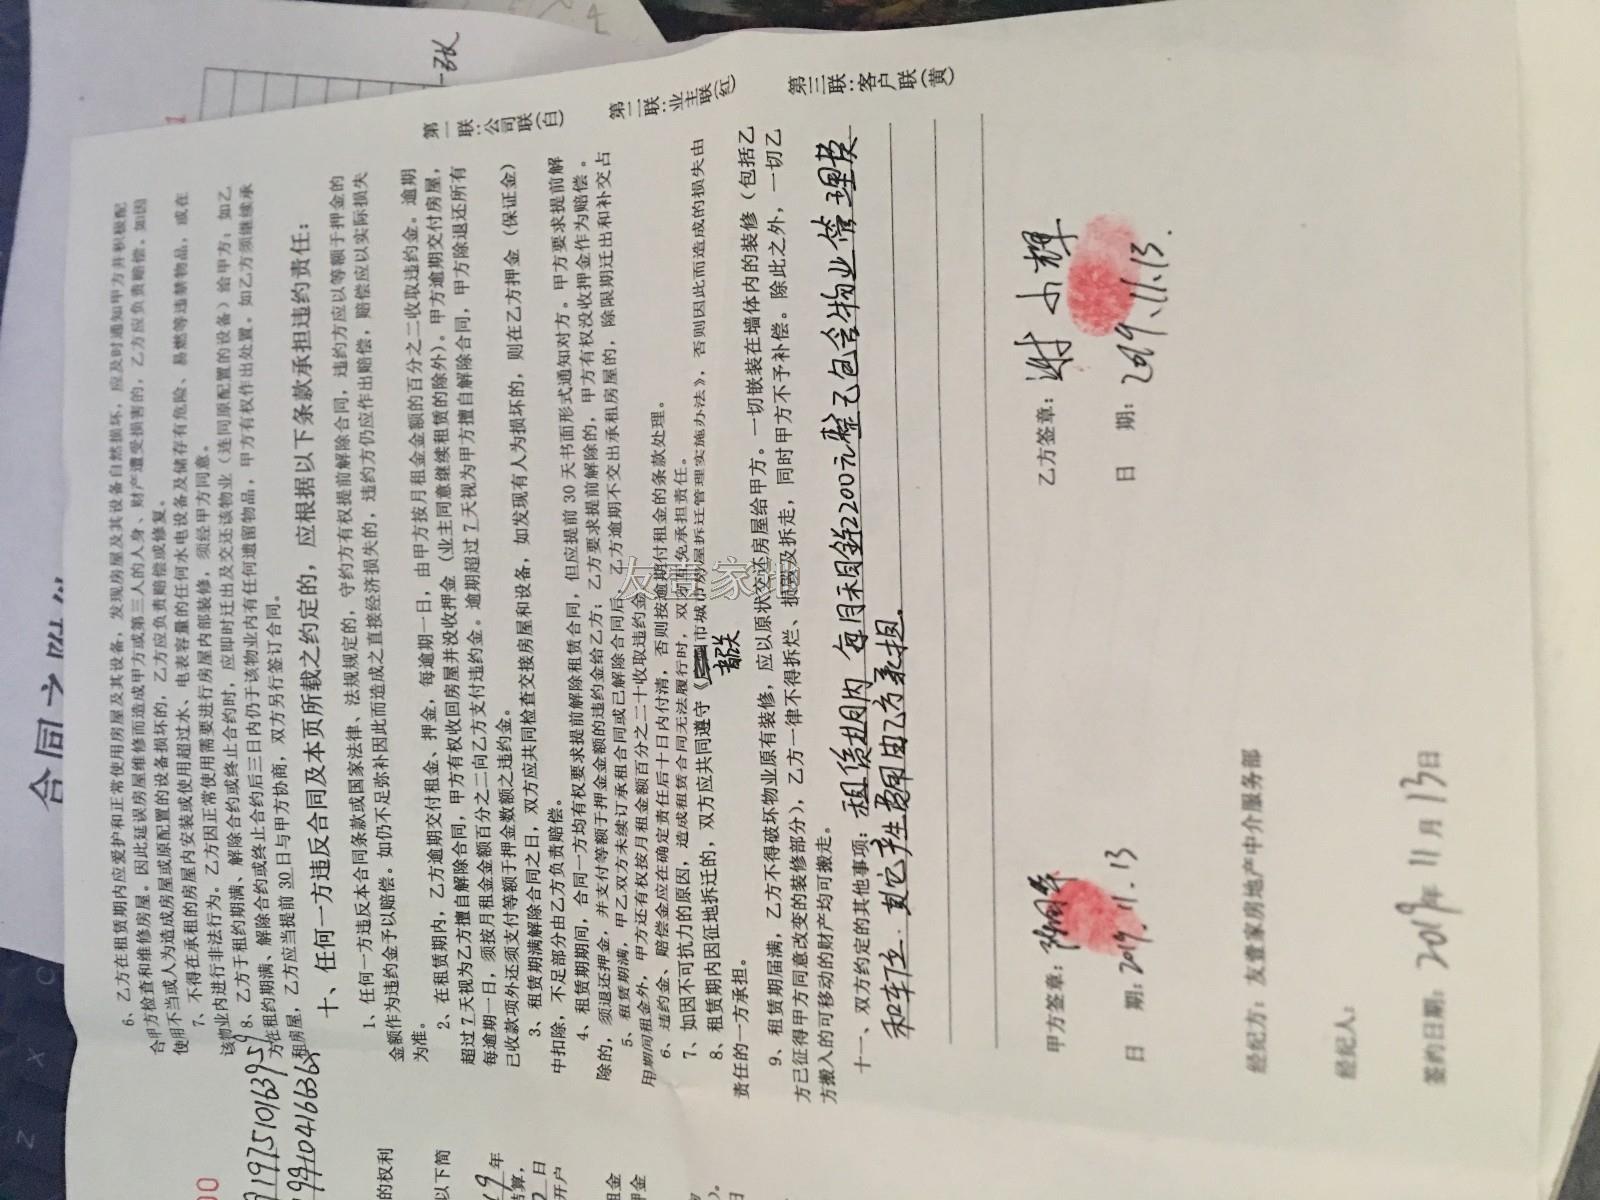 合同之附件
一张
6、乙方在租赁期内应爱护和正常使用房屋及其设备，发现房屋及其设备自然损坏，应及时通知甲方并积极配
合甲方检查和维修房屋。因此延误房屋维修而造成甲方或第三人的人身、财产遭受损害的，乙方应负责赔偿。如因
使用不当或人为造成房屋或原配置的设备损坏的，乙方应负责赔偿或修复。
7、不得在承租的房屋内安装或使用超过水、电表容量的任何水电设备及储存有危险、易燃等违禁物品，或在
该物业内进行非法行为。乙方因正常使用需要进行房屋内部装修，须经甲方同意。
8、乙方于租约期满、解除合约或终止合约时，应即时迁出及交还该物业（连同原配置的设备）给甲方；如乙
方在租约期满、解除合约或终止合约后三日内仍于该物业内有任何遗留物品，甲方有权作出处置。如乙方须继续承
租房屋，乙方应当提前30日与甲方协商，双方另行签订合同。
十、任何一方违反合同及本页所载之约定的，应根据以下条款承担违约责任：
1、任何一方违反本合同条款或国家法律、法规规定的，守约方有权提前解除合同，违约方应以等额于押金的
金额作为违约金予以赔偿。如仍不足弥补因此而造成之直接经济损失的，违约方仍应作出赔偿，赔偿应以实际损失
为准。
2、在租赁期内，乙方逾期交付租金、押金，每逾期一日，由甲方按月租金金额的百分之二收取违约金。逾期
超过7天视为乙方擅自解除合同，甲方有权收回房屋并没收押金（业主同意继续租赁的除外）。甲方逾期交付房屋，
每逾期一日，须按月租金金额百分之二向乙方支付违约金。逾期超过7天视为甲方擅自解除合同，甲方除退还所有
已收款项外还须支付等额于押金数额之违约金。
3、租赁期满解除合同之日，双方应共同检查交接房屋和设备，如发现有人为损坏的，则在乙方押金（保证金）
中扣除，不足部分由乙方负责赔偿。
4、租赁期期间，合同一方均有权要求提前解除租赁合同，但应提前30天书面形式通知对方。甲方要求提前解
除的，须退还押金，并支付等额于押金金额的违约金给乙方；乙方要求提前解除的，甲方有权没收押金作为赔偿。
5、租赁期满，甲乙双方未续订承租合同或已解除合同后，乙方逾期不交出承租房屋的，除限期迁出和补交占
用期间租金外，甲方还有权按月租金额百分之二十收取违约金
6、违约金、赔偿金应在确定责任后十日内付清，否则按逾期付租金的条款处理。
7、如因不可抗力的原因，造成租赁合同无法履行时，双方互免承担责任。
8、租赁期内因征地拆迁的，双方应共同遵守《 市城市房屋拆迁管理实施办法》，否则因此而造成的损失由
韶关
责任的一方承担。
9、租赁期届满，乙方不得破坏物业原有装修，应以原状交还房屋给甲方。一切嵌装在墙体内的装修（包括乙
方已征得甲方同意改变的装修部分），乙方一律不得拆烂、损毁及拆走，同时甲方不予补偿。除此之外，一切乙
方搬入的可移动的财产均可搬走。
十一、双方约定的其他事项：租赁期内 每月租金2200元整已包含物业管理费
和车位．其它产生费用由乙方承担．
甲方签章：
日 期：2019.11.13
乙方签章：谢小辉
日 期：2019.11.13.
经纪方：友壹家房地产中介服务部
经纪人：
签约日期：2019年11月13日
第一联：公司联（白）
第二联：业主联（红）
第三联：客户联（黄）
的权利
以下简
年
结算，
日
开户
友壹家